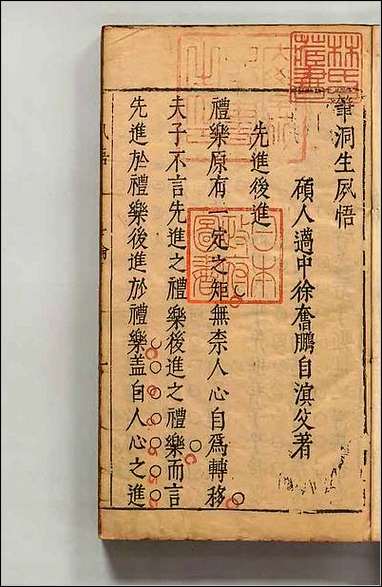 筆洞生夙悟
碩人邁中徐奮鵬自溟父著
先進後進
禮樂原有一定之矩無柰人心自爲轉移
夫子不言先進之禮樂後進之禮樂而言
先進於禮樂後進於禮樂盖自人心之進
林氏藏書
日本政府圖書